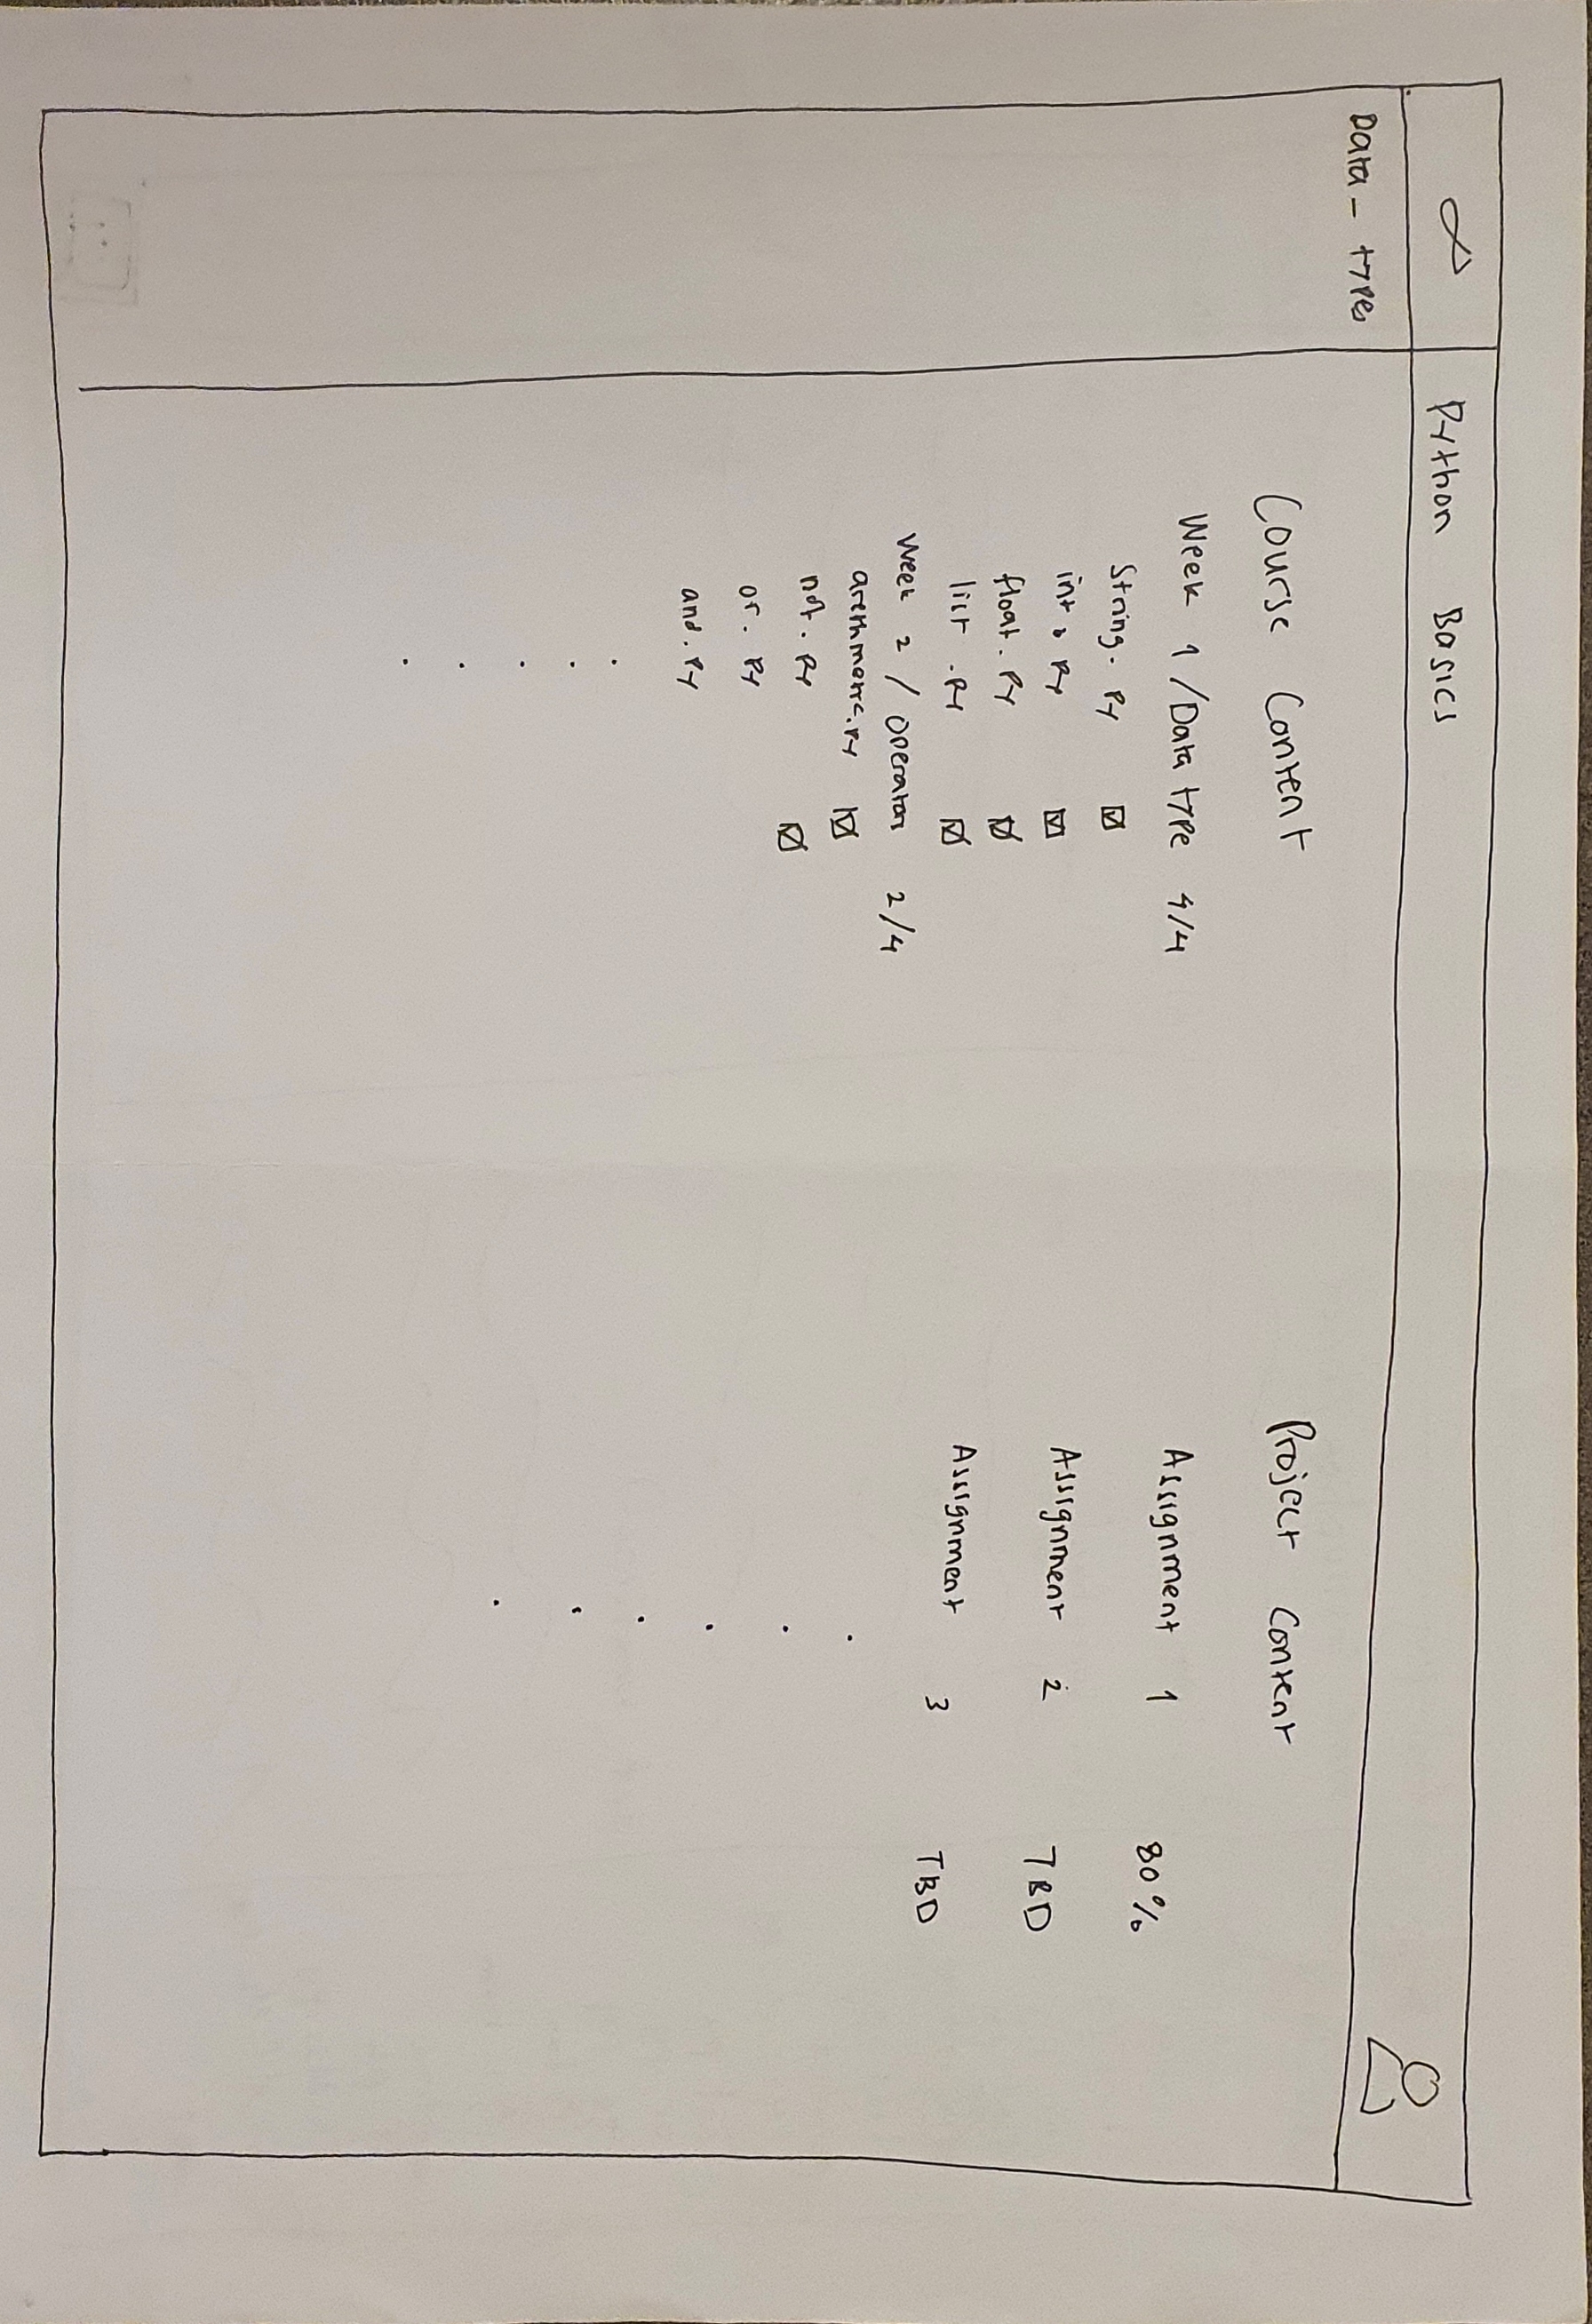 Python Basics
Data-types
Course Content
Week 1 / Data type 4/4
String.py
int.py
float.py
list.py
Week 2 / Operators 2/4
arethmetric.py
not.py
or.py
and.py
Project Content
Assignment 1 80%
Assignment 2 TBD
Assignment 3 TBD